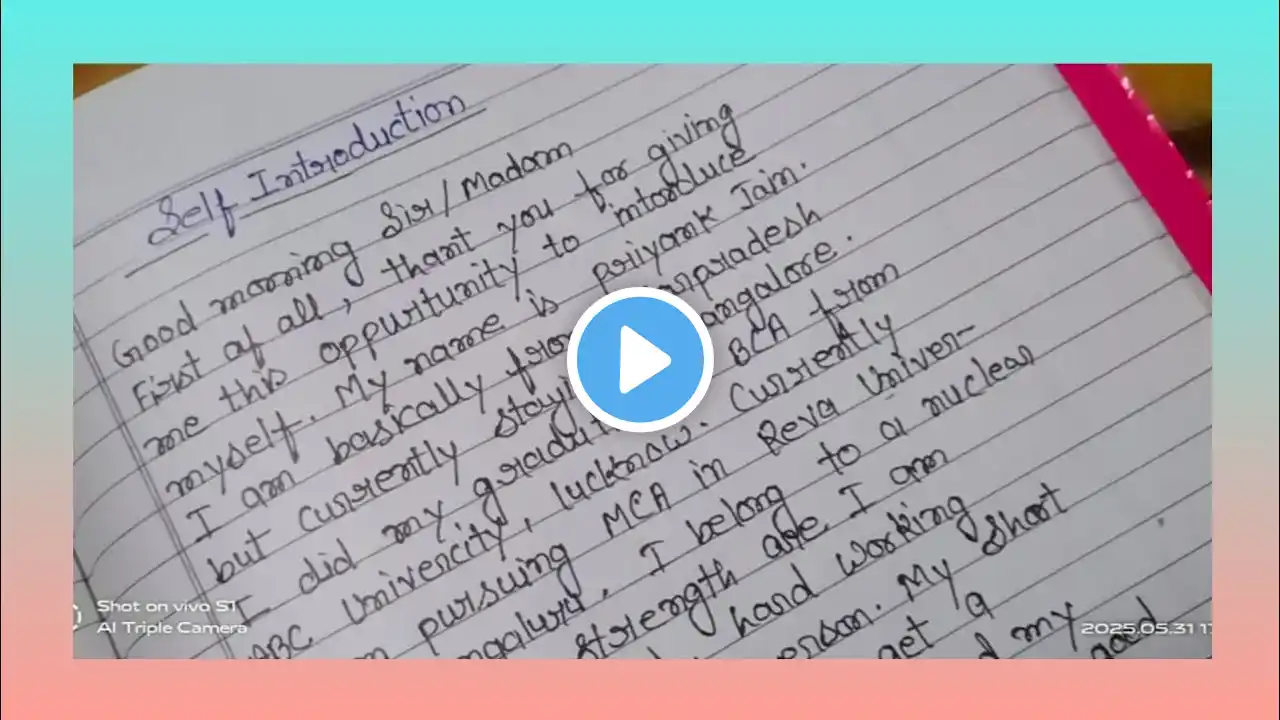 Self Introduction
Good morning Sir/Madam
First of all, thant you for giving
me this oppurtunity to intorduce
myself. My name is priyank Jain.
I am basically from
but currently
I did my BCA from
ABC Univercity, lucknow. Currently
pursuing MCA in Reva Univer-
I belong to a nuclear
strength are I am
hard working
My short
get a
my
Shot on vivo S1
AI Triple Camera
2025.05.31